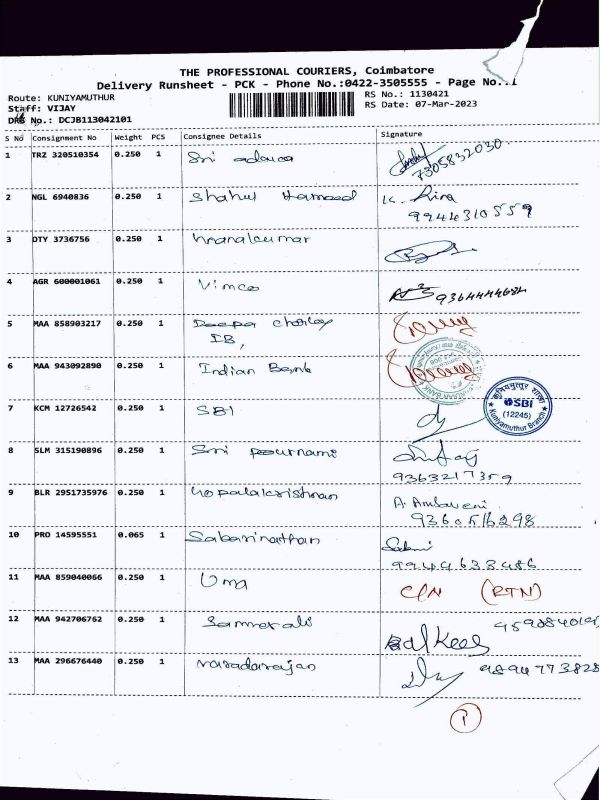 THE PROFESSIONAL COURIERS, Coimbatore
Delivery Runsheet - PCK - Phone No.:0422-3505555 - Page No..1
Route: KUNIYAMUTHUR
RS No.: 1130421
Staff: VIJAY
RS Date: 07-Mar-2023
DRS No.: DCJB113042101
S No Consignment No Weight PCS Consignee Details Signature
1 TRZ 320510354 0.250 1 Sri
7305832030
2 NGL 6940836 0.250 1 Shahul Hameed
9944310559
3 DTY 3736756 0.250 1
4 AGR 600001061 0.250 1 Vimco
5 MAA 858903217 0.250 1 Deepa
IB,
6 MAA 943092890 0.250 1 Indian Bank
7 KCM 12726542 0.250 1 SBI
SBI
(12245)
Kuniyamuthur Branch
8 SLM 315190896 0.250 1 Sri pournami
9363217359
9 BLR 2951735976 0.250 1 Gopalakrishnan
10 PRO 14595551 0.065 1 Sabarinathan
9944633486
11 MAA 859040066 0.250 1 Uma C/N (RTN)
12 MAA 942706762 0.250 1
13 MAA 296676440 0.250 1 Varadarajan
9894773828
1